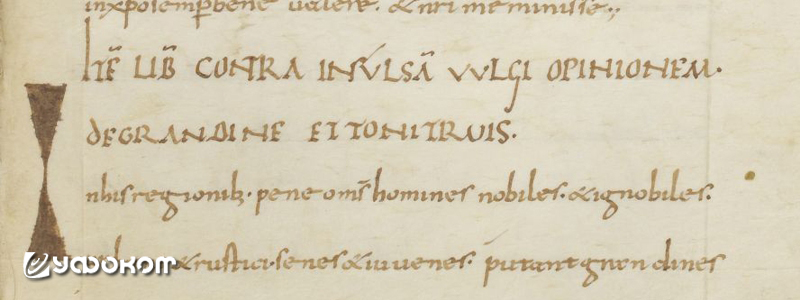 inxpo semp bene valere. & nri meminisse;,
ITĒ LIB̄ CONTRA INSVLSĀ VVLGI OPINIONEM.
DEGRANDINE ET TONITRUIS.
In hisregionib; pene oms̄ homines nobiles. & ignobiles.
& rustici. senes & iuvenes. putant grandines
УФОКОМ